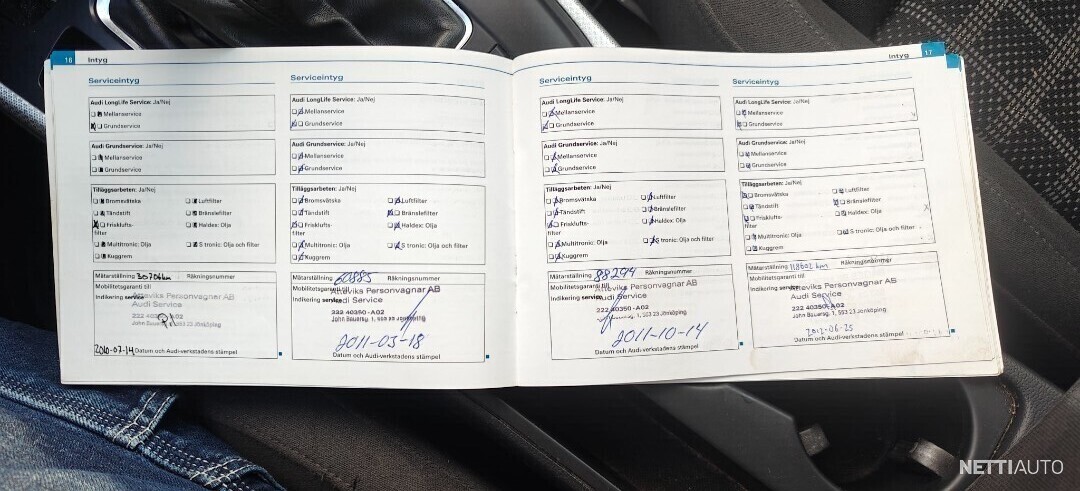 16 Intyg
Serviceintyg
Audi LongLife Service: Ja/Nej
Mellanservice
Grundservice
Audi Grundservice: Ja/Nej
Mellanservice
Grundservice
Tilläggsarbeten: Ja/Nej
Bromsvätska Luftfilter
Tändstift Bränslefilter
Frisklufts- Haldex: Olja
filter
Multitronic: Olja S tronic: Olja och filter
Kuggrem
Mätarställning 30706km Räkningsnummer
Mobilitetsgaranti till
Indikering service
Atteviks Personvagnar AB
Audi Service
222 40350 - A02
John Bauersg. 1, 553 23 Jönköping
2010-07-14 Datum och Audi-verkstadens stämpel
Serviceintyg
Audi LongLife Service: Ja/Nej
Mellanservice
Grundservice
Audi Grundservice: Ja/Nej
Mellanservice
Grundservice
Tilläggsarbeten: Ja/Nej
Bromsvätska Luftfilter
Tändstift Bränslefilter
Frisklufts- Haldex: Olja
filter
Multitronic: Olja S tronic: Olja och filter
Kuggrem
Mätarställning 60885 Räkningsnummer
Mobilitetsgaranti till
Indikering service
Atteviks Personvagnar AB
Audi Service
222 40350 - A02
John Bauersg. 1, 553 23 Jönköping
2011-03-18
Datum och Audi-verkstadens stämpel
Intyg 17
Serviceintyg
Audi LongLife Service: Ja/Nej
Mellanservice
Grundservice
Audi Grundservice: Ja/Nej
Mellanservice
Grundservice
Tilläggsarbeten: Ja/Nej
Bromsvätska Luftfilter
Tändstift Bränslefilter
Frisklufts- Haldex: Olja
filter
Multitronic: Olja S tronic: Olja och filter
Kuggrem
Mätarställning 88294 Räkningsnummer
Mobilitetsgaranti till
Indikering service
Atteviks Personvagnar AB
Audi Service
222 40350 - A02
1, 553 23 Jönköping
2011-10-14
Datum och Audi-verkstadens stämpel
Serviceintyg
Audi LongLife Service: Ja/Nej
Mellanservice
Grundservice
Audi Grundservice: Ja/Nej
Mellanservice
Grundservice
Tilläggsarbeten: Ja/Nej
Bromsvätska Luftfilter
Tändstift Bränslefilter
Frisklufts- Haldex: Olja
filter
Multitronic: Olja S tronic: Olja och filter
Kuggrem
Mätarställning 118602 km Räkningsnummer
Mobilitetsgaranti till
Indikering service
Atteviks Personvagnar AB
Audi Service
222 40350-A02
John Bauersg. 1, 553 23 Jönköping
2012-06-25
Datum och Audi-verkstadens stämpel
NETTIAUTO